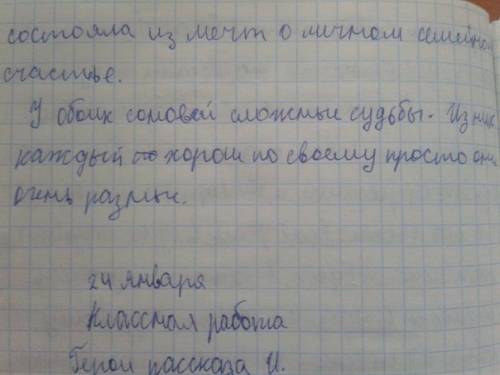 состояла из мечт о личном семейном
счастье.
У обоих соловей сложные судьбы. Из них
каждый хорош по своему просто они
очень разные.
24 января
Классная работа
Герои рассказа И.